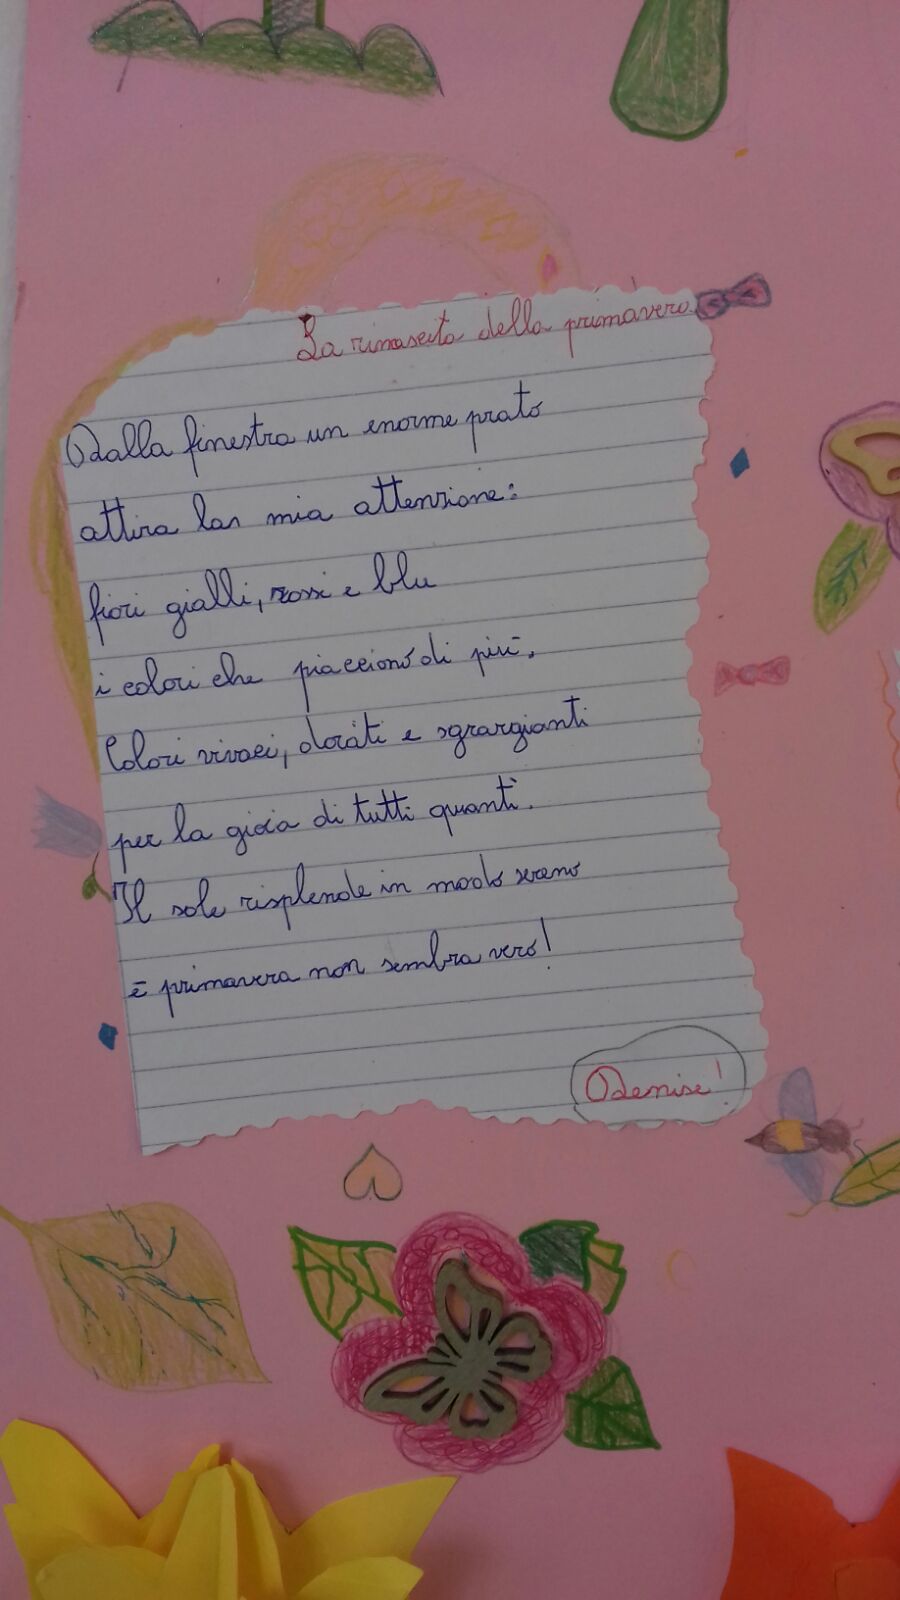 La rinascita della primavera
Dalla finestra un enorme prato
attira la mia attenzione:
fiori gialli, rossi e blu
i colori che piacciono di più.
Colori vivaci, dorati e sgrargianti
per la gioia di tutti quanti.
Il sole risplende in modo sereno
è primavera non sembra vero!
Denise!